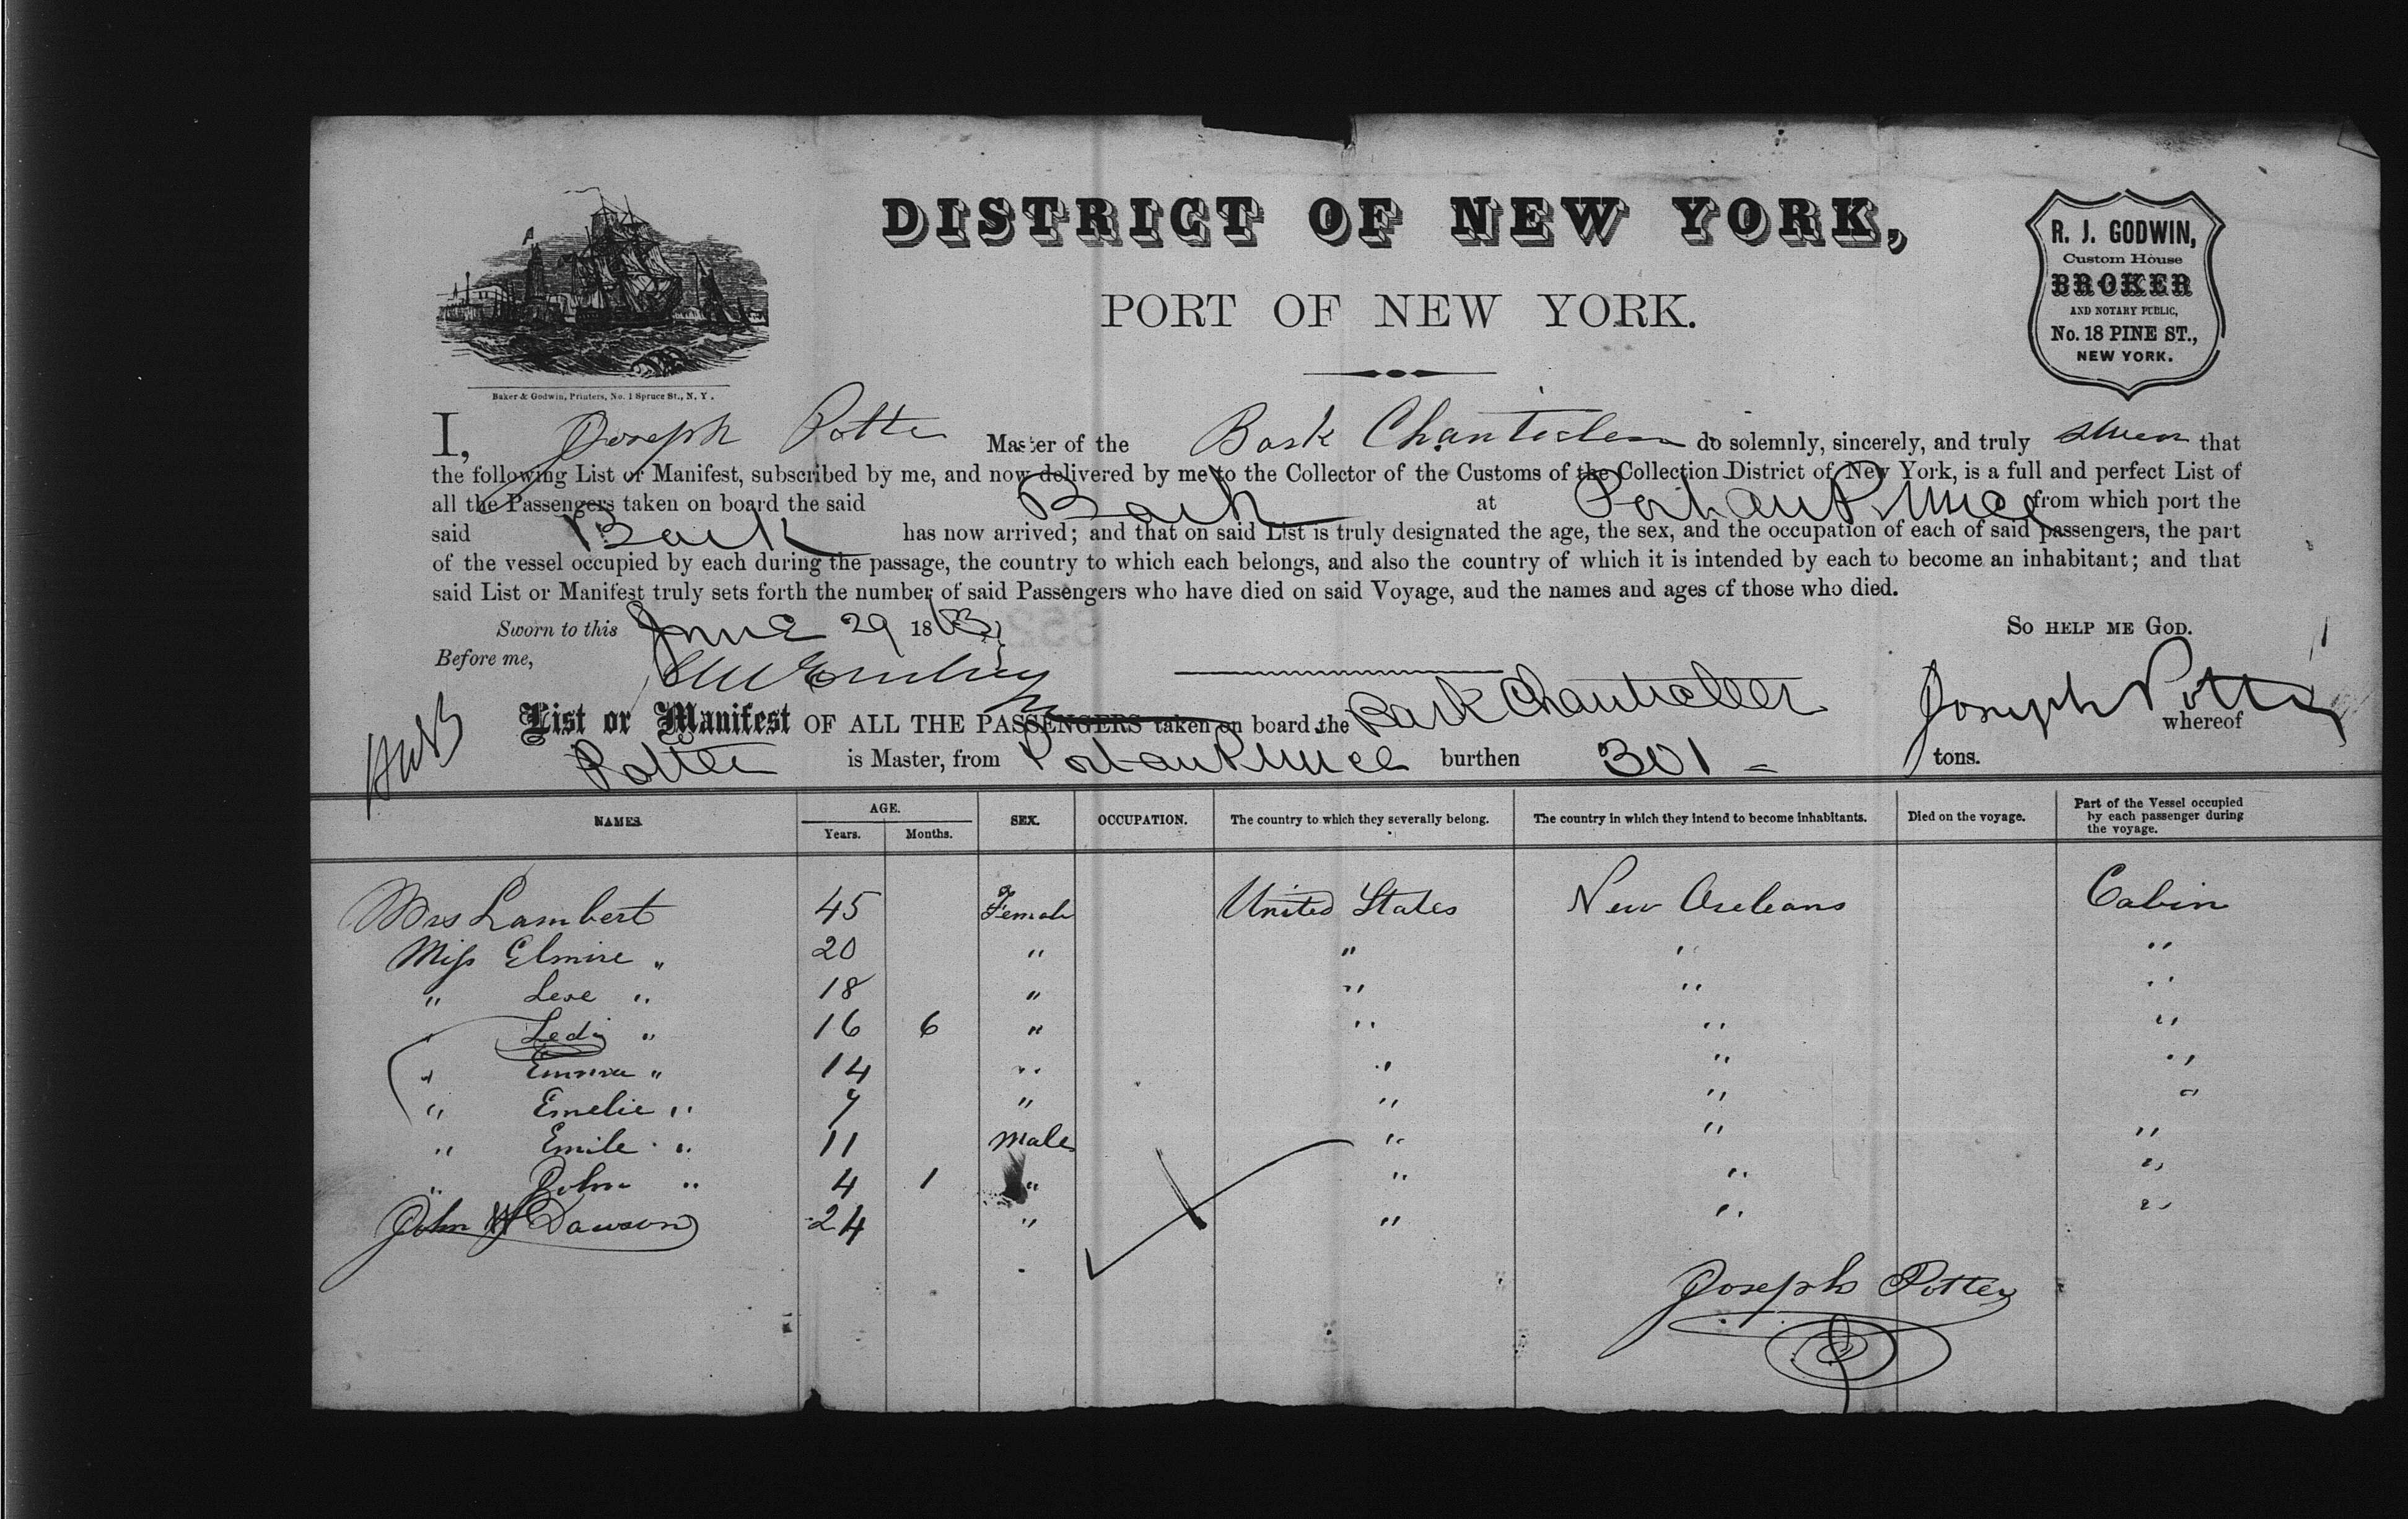 DISTRICT OF NEW YORK,
PORT OF NEW YORK.
R. J. GODWIN,
Custom House
BROKER
AND NOTARY PUBLIC,
No. 18 PINE ST.,
NEW YORK.
Baker & Godwin, Printers, No. 1 Spruce St., N. Y.
I, Joseph Potter Master of the Bark Chanticleer do solemnly, sincerely, and truly swear that
the following List or Manifest, subscribed by me, and now delivered by me to the Collector of the Customs of the Collection District of New York, is a full and perfect List of
all the Passengers taken on board the said Bark at Port au Prince from which port the
said Bark has now arrived; and that on said List is truly designated the age, the sex, and the occupation of each of said passengers, the part
of the vessel occupied by each during the passage, the country to which each belongs, and also the country of which it is intended by each to become an inhabitant; and that
said List or Manifest truly sets forth the number of said Passengers who have died on said Voyage, and the names and ages of those who died.
Sworn to this June 29 1863 SO HELP ME GOD.
Before me, Joseph Potter
List or Manifest OF ALL THE PASSENGERS taken on board the Bark Chanticleer whereof
Potter is Master, from Port au Prince burthen 301 tons.
NAMES. AGE. SEX. OCCUPATION. The country to which they severally belong. The country in which they intend to become inhabitants. Died on the voyage. Part of the Vessel occupied by each passenger during the voyage.
Years. Months.
Mrs Lambert 45 Female United States New Orleans Cabin
Miss Elmire " 20 " " " "
" Leve " 18 " " " "
" Ledi " 16 6 " " " "
" Emma " 14 " " " "
" Emelie " 7 " " " "
" Emile " 11 Male " " "
" John " 4 1 " " " "
John W Dawson 24 " " " "
Joseph Potter